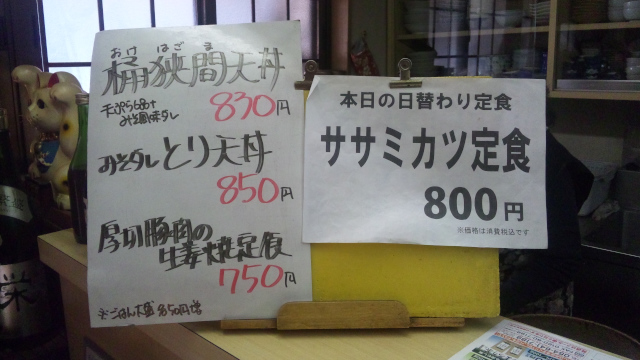 おけはざま
桶狭間天丼
天ぷら6品+
みそ風味タレ
830円
みそタレとり天丼
850円
厚切豚肉の
生姜焼定食
750円
※ごはん大盛
50円増
本日の日替わり定食
ササミカツ定食
800円
※価格は消費税込です
栄